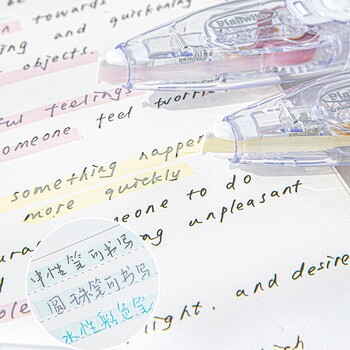 towards
ing and quickening
objects.
ful feelings
omeone feel worri
something happer
more quickly
someone to do
ng unpleasant
light. and desire
中性笔可书写
圆珠笔可书写
水性彩色笔